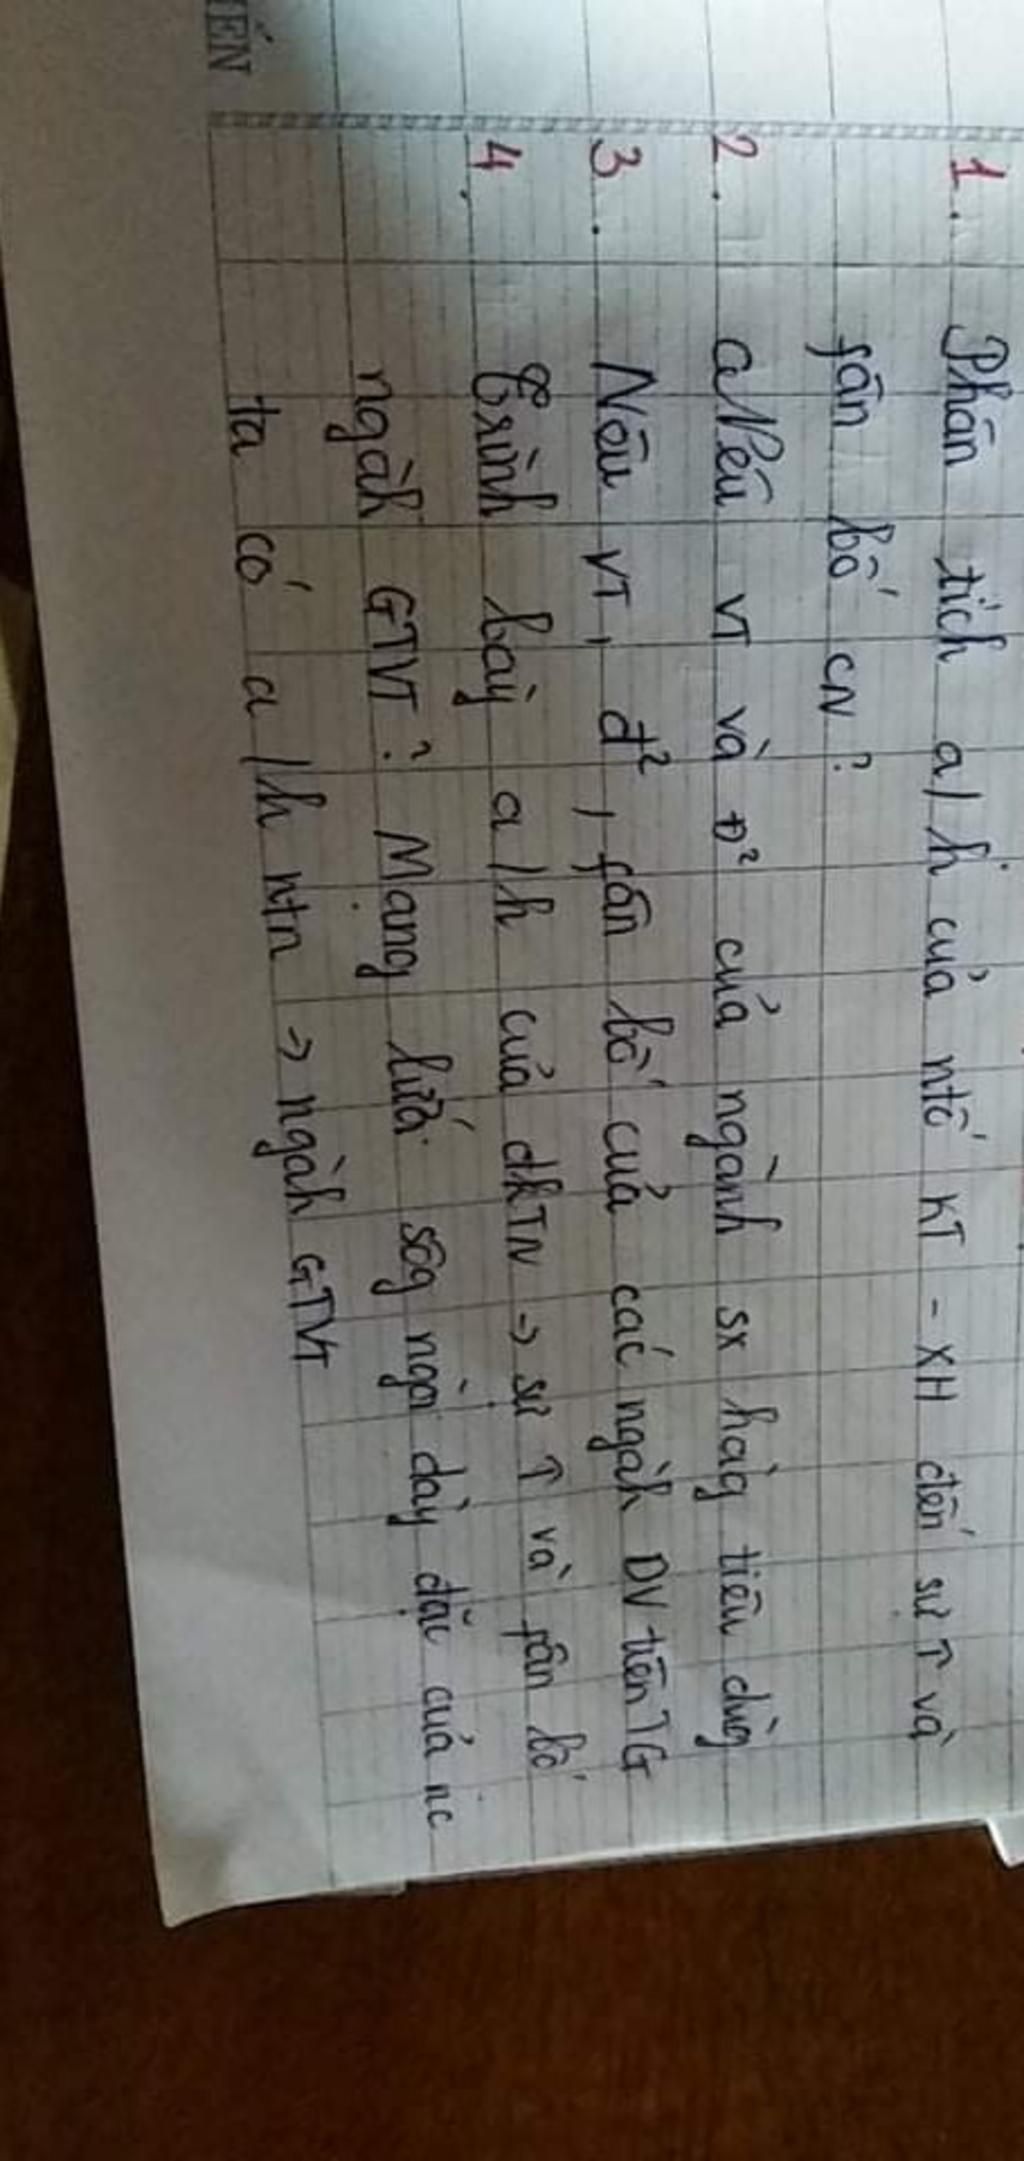 1. Phân tích a/h của ntố KT - XH đến sự ↑ và
fân bố CN?
2. Nêu VT và Đ² của ngành sx hàg tiêu dùg
3. Nêu VT, đ², fân bố của các ngàh DV trên TG
4. Trình bày a/h của dkTN → sự ↑ và fân bố
ngàh GTVT? Mạng lưới sôg ngòi dày đặc của nc
ta có a/h ntn → ngàh GTVT
ẾN